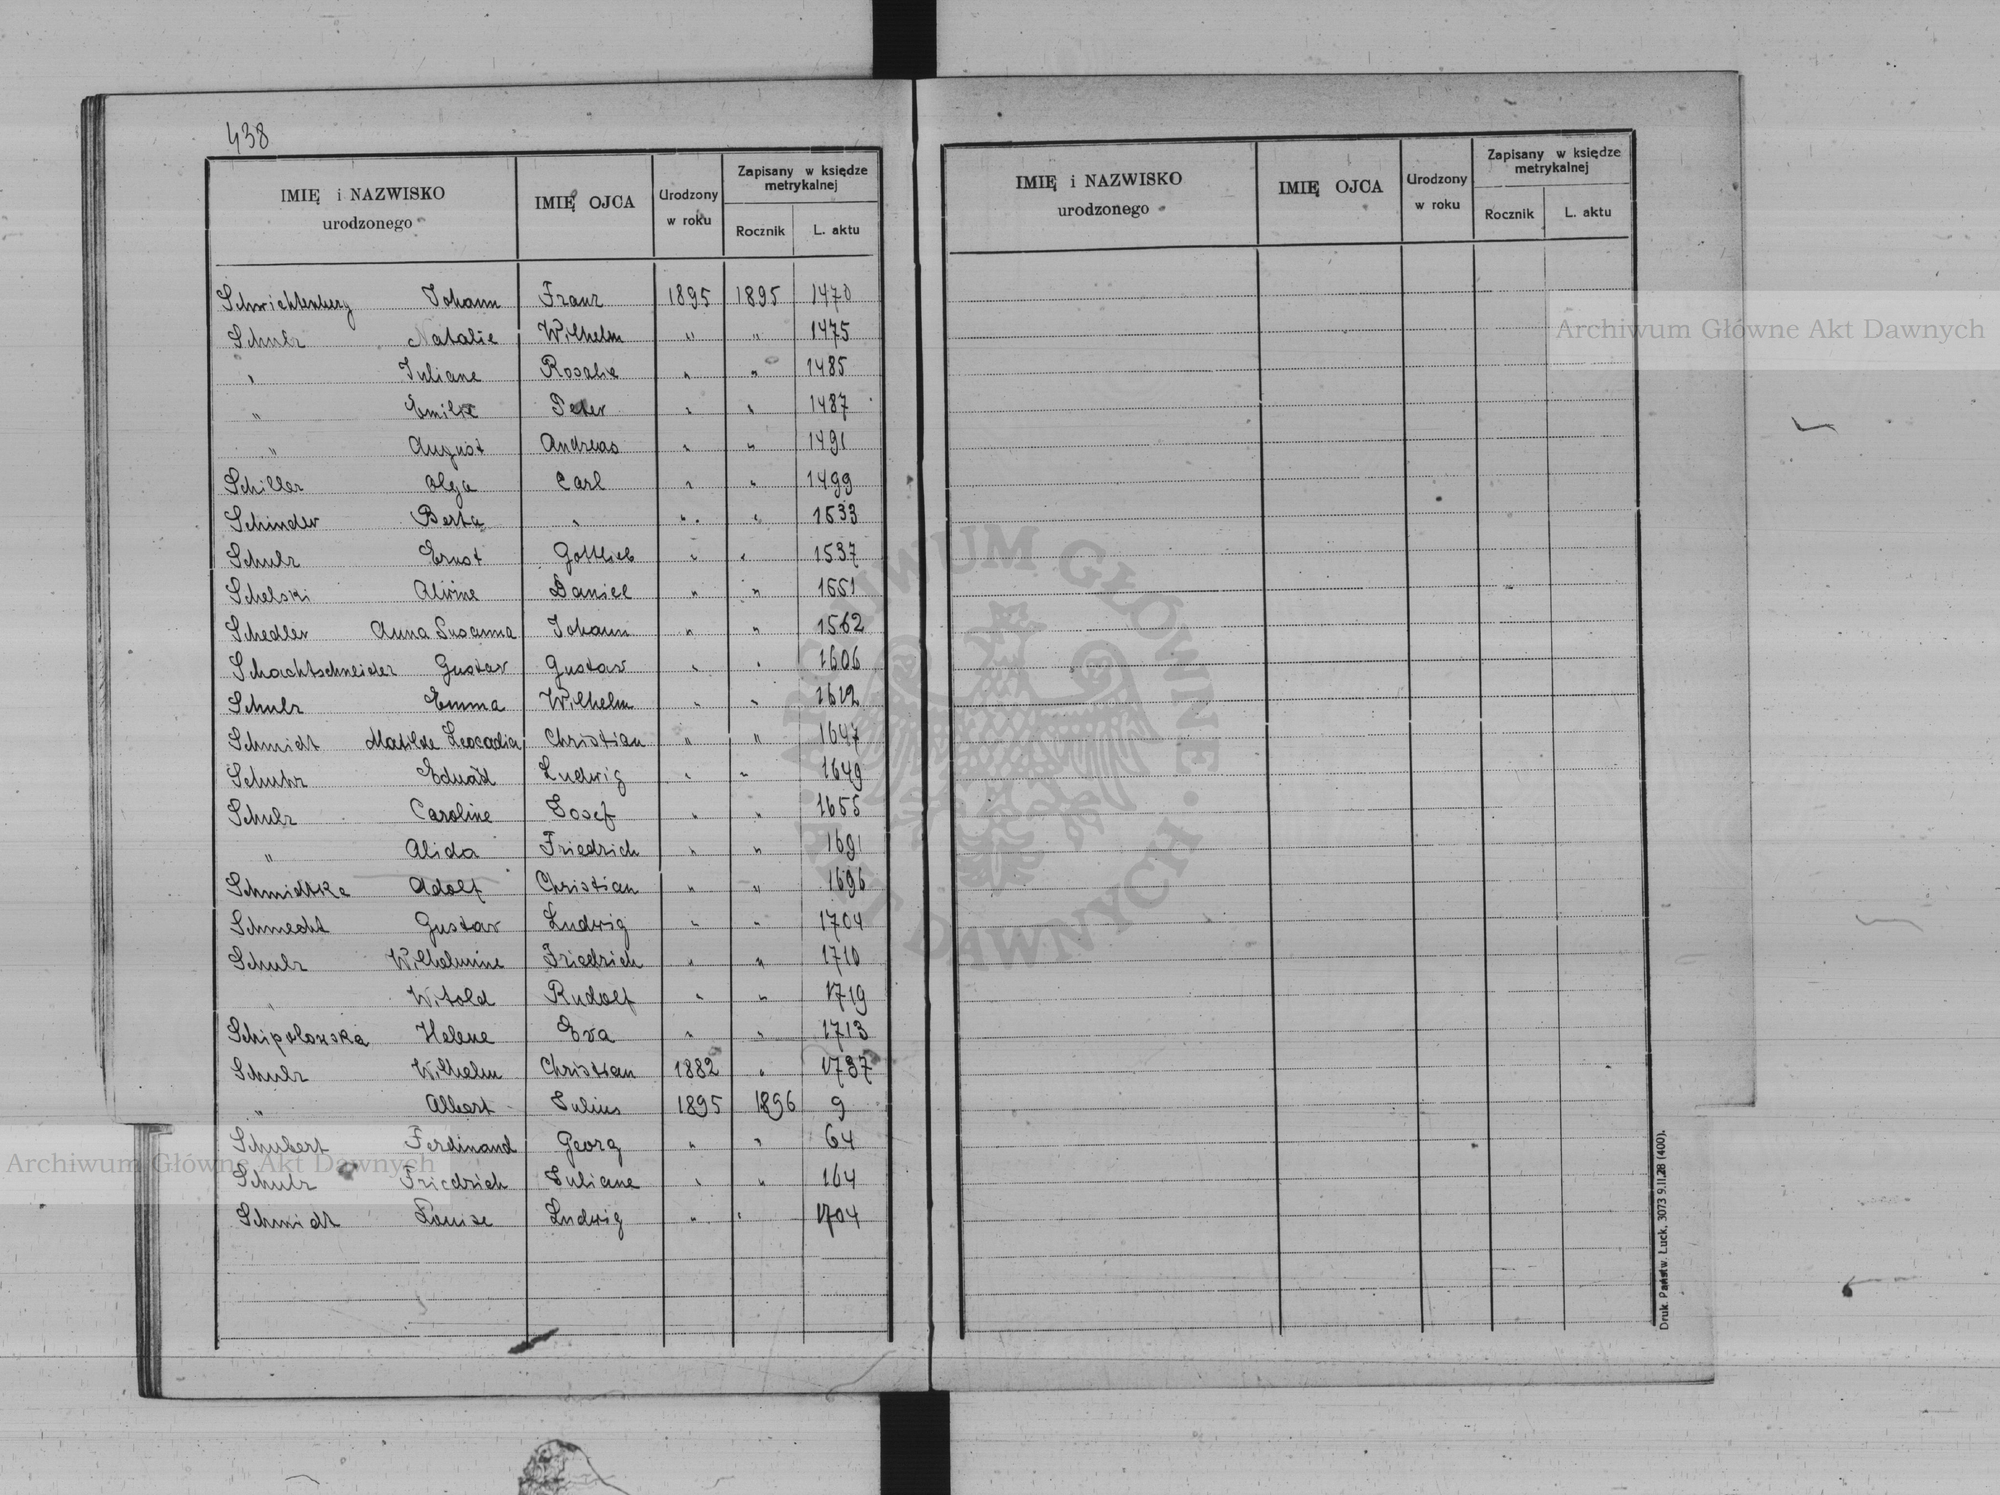 438
IMIĘ i NAZWISKO urodzonego IMIĘ OJCA Urodzony w roku Zapisany w księdze metrykalnej Rocznik L. aktu
Schwichtenberg Johann Franz 1895 1895 1470
Schulz Natalie Wilhelm " " 1475
" Juliane Rosalie " " 1485
" Emilie Peter " " 1487
" August Andreas " " 1491
Schiller Olga Carl " " 1499
Schinder Berta " " " 1533
Schulz Ernst Gottlieb " " 1537
Schelski Alwine Daniel " " 1551
Schedler Anna Susanna Johann " " 1562
Schachtschneider Gustav Gustav " " 1606
Schulz Emma Wilhelm " " 1612
Schmidt Matilde Leocadia Christian " " 1647
Eduard Ludwig " " 1649
Schulz Caroline Josef " " 1655
" Alida Friedrich " " 1691
Schmidtke Adolf Christian " " 1696
Schmecht Gustav Ludwig " " 1704
Schulz Wilhelmine Friedrich " " 1710
" Witold Rudolf " " 1719
Schipolowska Helene Eva " " 1713
Schulz Wilhelm Christian 1882 " 1737
" Albert Julius 1895 1896 9
Schubert Ferdinand Georg " " 64
Schulz Friedrich Juliane " " 164
Schmidt Louise Ludwig " " 1704
IMIĘ i NAZWISKO urodzonego IMIĘ OJCA Urodzony w roku Zapisany w księdze metrykalnej Rocznik L. aktu
Druk. Państw. Łuck, 3073 9.II.28 (400).
Archiwum Główne Akt Dawnych
Archiwum Główne Akt Dawnych
ARCHIWUM GŁÓWNE · AKT DAWNYCH ·